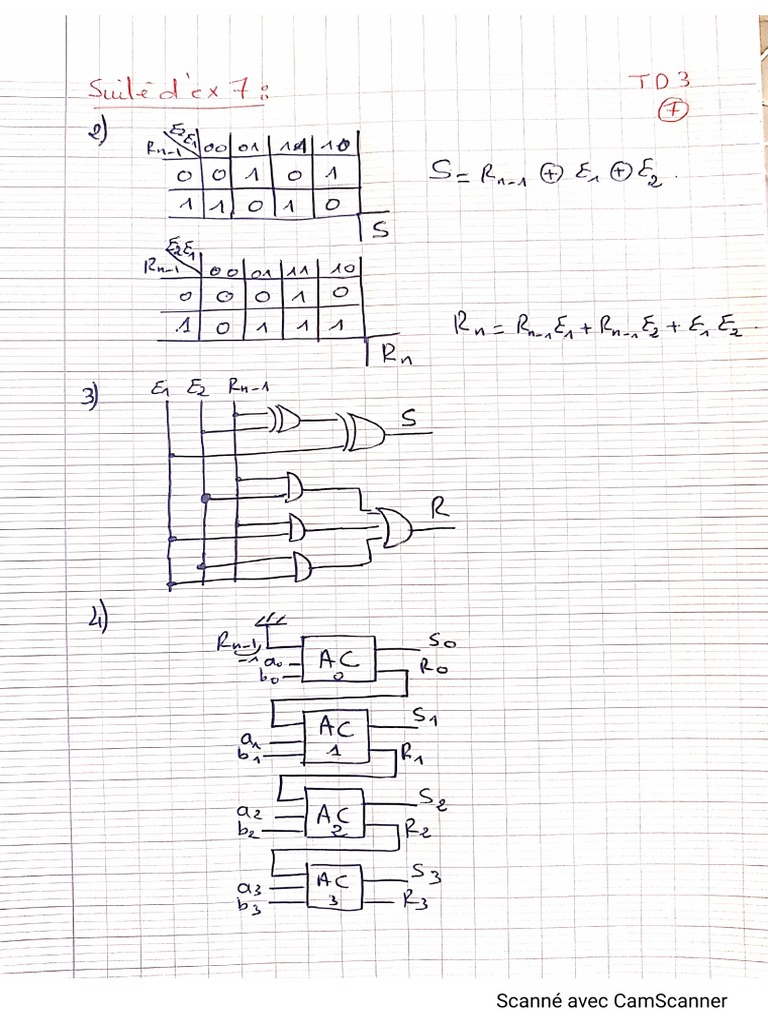 Suite d'ex 7 :
TD3
7
2)
E2E1 00 01 11 10
Rn-1
0 0 1 0 1
1 1 0 1 0
S
S = Rn-1 ⊕ E1 ⊕ E2.
E2E1
Rn-1 00 01 11 10
0 0 0 1 0
1 0 1 1 1
Rn
Rn = Rn-1E1 + Rn-1E2 + E1E2.
3)
E1 E2 Rn-1
S
R
4)
Rn-1
-1
a0
b0
AC
0
S0
R0
a1
b1
AC
1
S1
R1
a2
b2
AC
2
S2
R2
a3
b3
AC
3
S3
R3
Scanné avec CamScanner